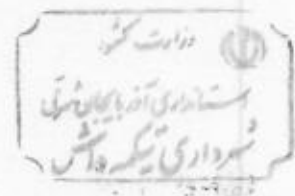 وزارت کشور
استانداری آذربایجان شرقی
شهرداری تیکمه داش